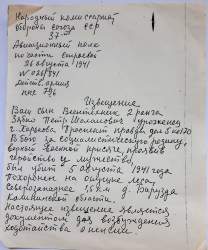 Народный комиссариат
обороны союза ССР
Авиационный полк
по части строевой
26 августа 1941
№ 026/541
действ. армия
ппс
Извещение
Ваш сын Воентехник 2 ранга
Петр уроженец
г. Харькова Проспект правды дом 5 кв
В бою за социалистическую родину,
верный военной присяге, проявив
геройство и мужество,
был убит 5 августа 1941 года
Похоронен на
северозападнее д.
Калининской области.
Настоящее извещение является
документом для возбуждения
ходатайства о пенсии